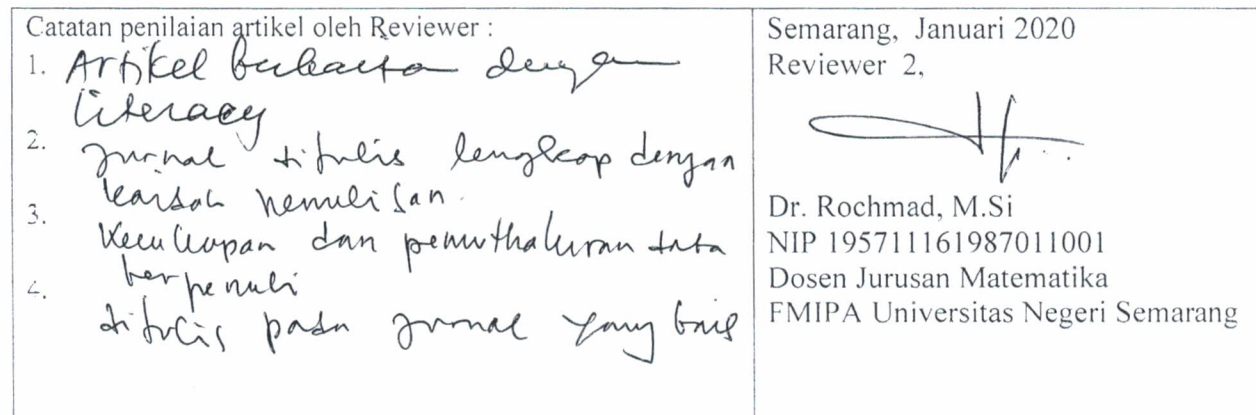 Catatan penilaian artikel oleh Reviewer :
1. Artikel berkaitan dengan
literacy
2. Jurnal ditulis lengkap dengan
kaidah penulisan.
3. Kecukupan dan pemuthakiran data
terpenuhi
4. ditulis pada jurnal yang baik
Semarang, Januari 2020
Reviewer 2,
Dr. Rochmad, M.Si
NIP 195711161987011001
Dosen Jurusan Matematika
FMIPA Universitas Negeri Semarang